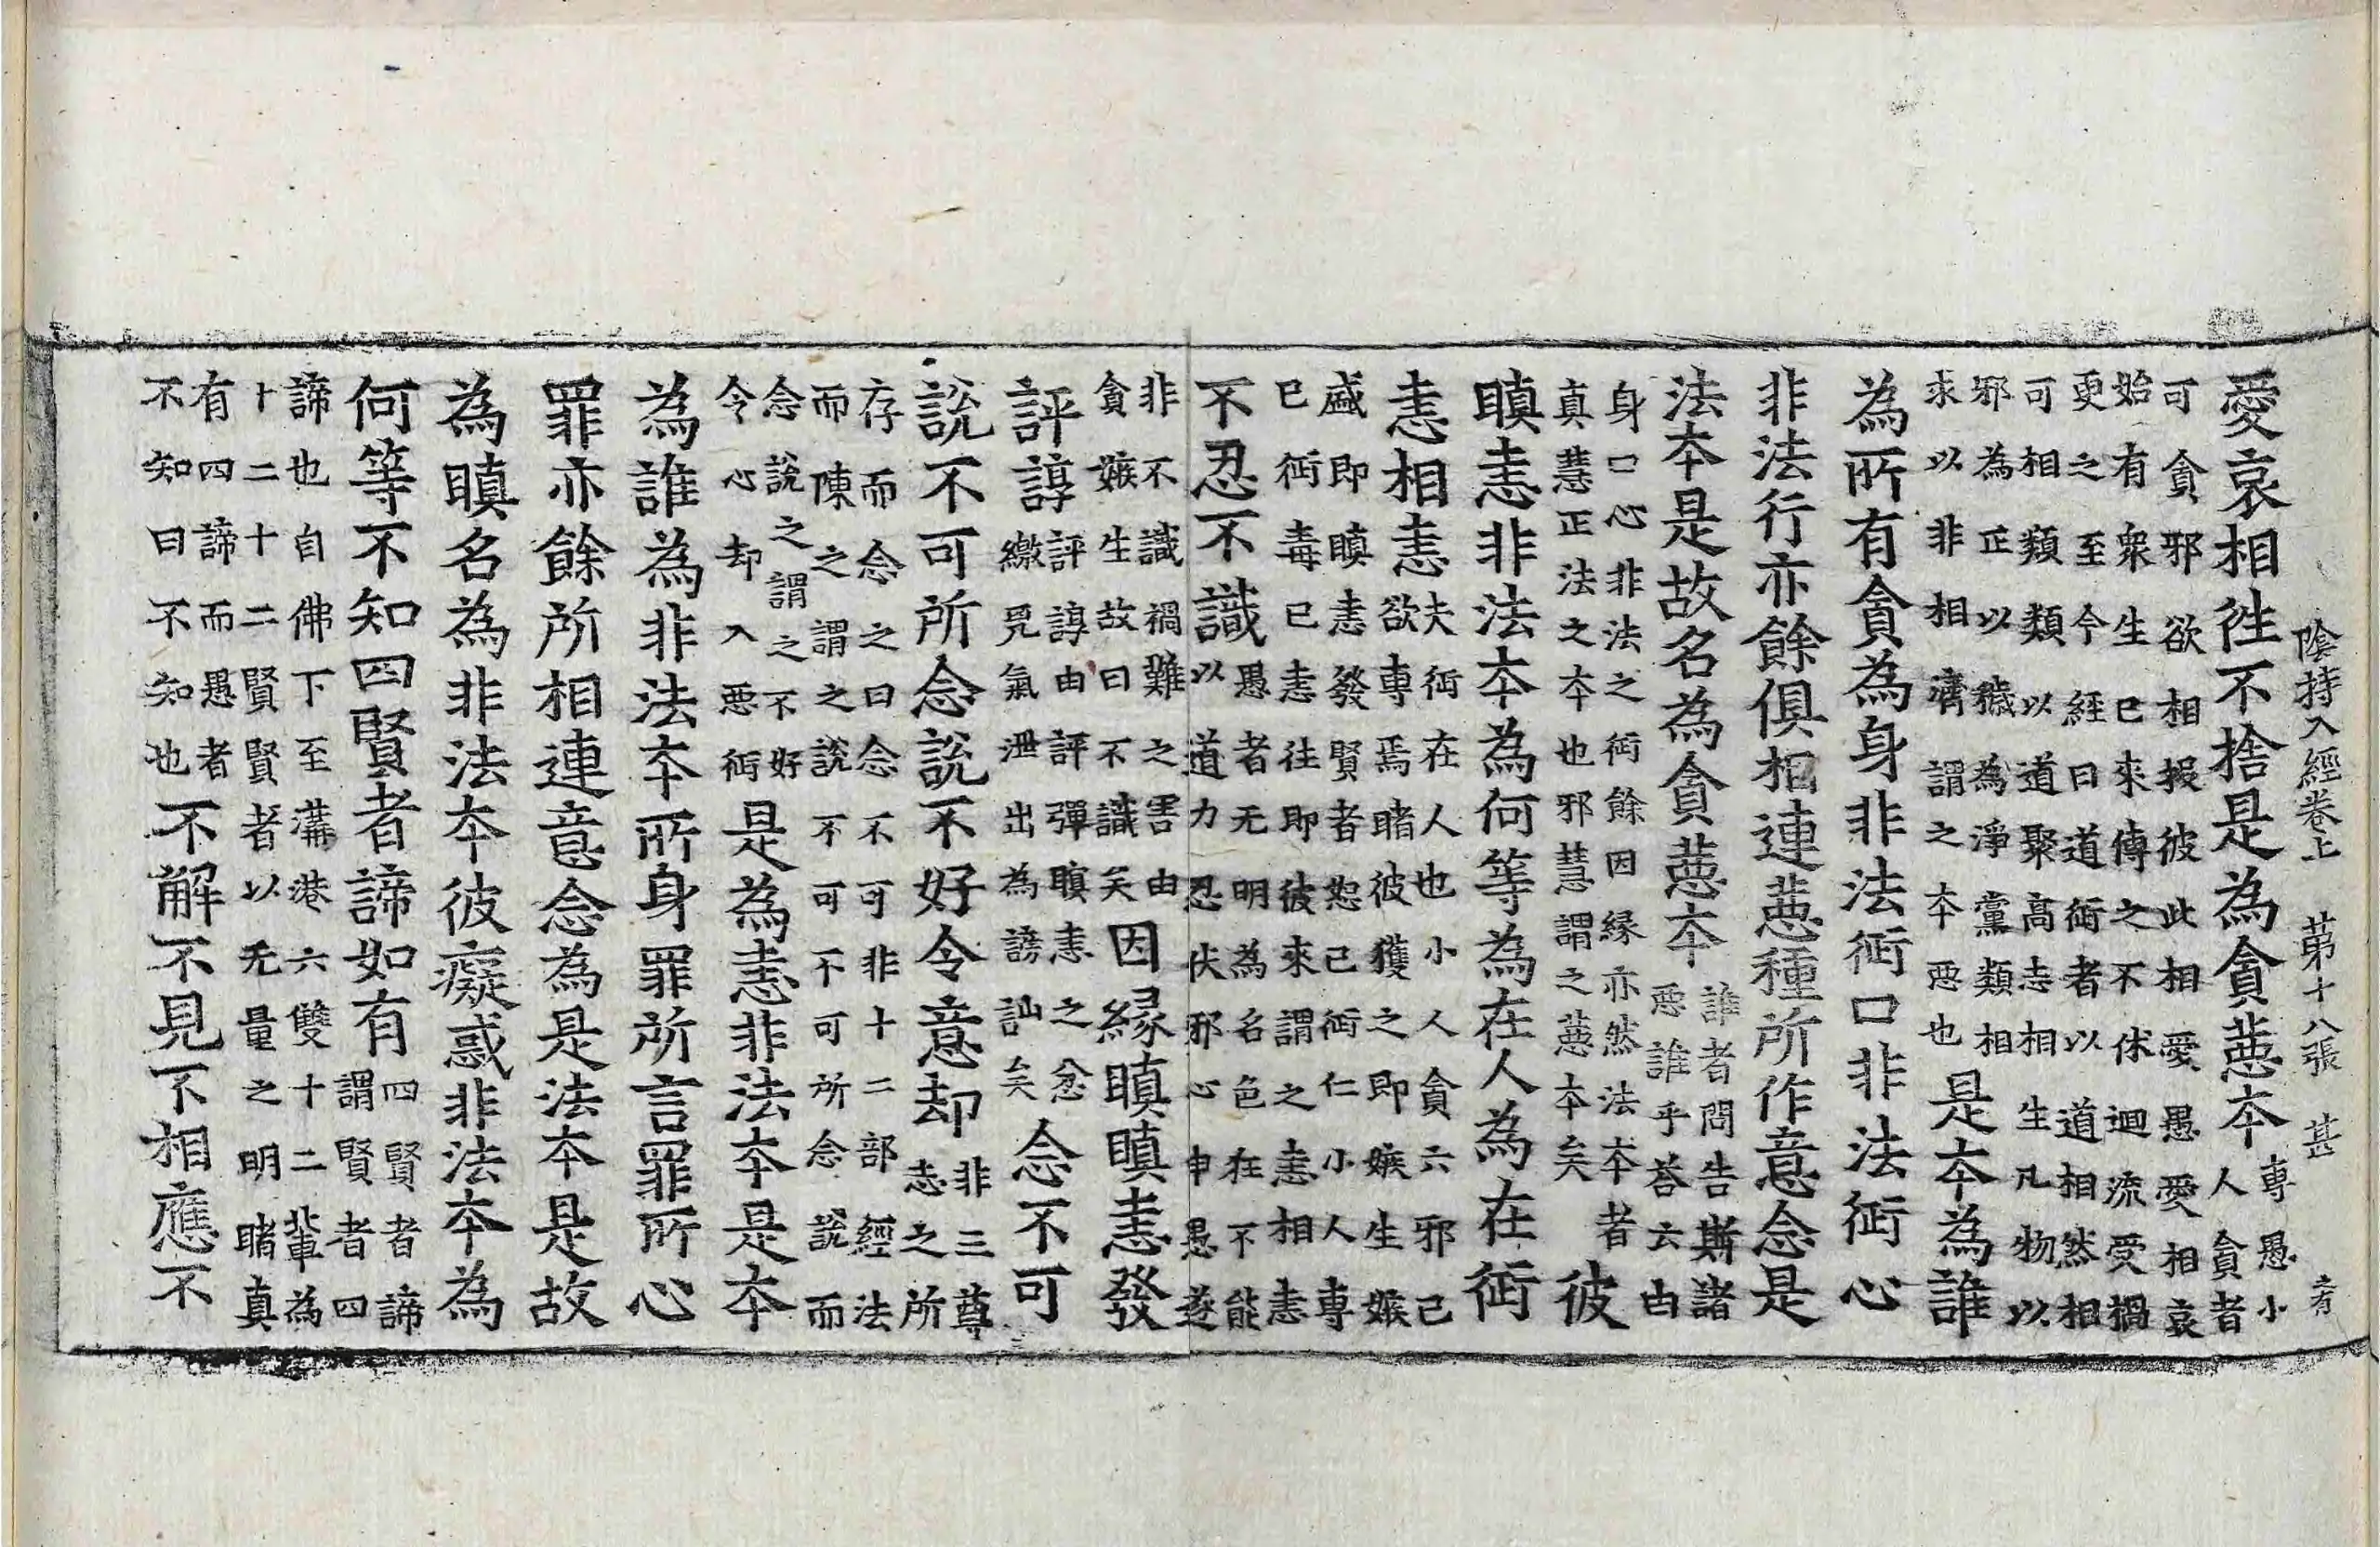 陰持入經卷上 第十八張 甚
愛哀相往不捨是為貪惡本專愚小人貪者
可貪邪欲相報彼此相愛愚愛相哀
始有衆生已來傳之不休迴流受禍
更之至今經曰道𧗪者以道相然相
可相類類以道聚高志相生凡物以
邪為正以穢為淨黨類相
求以非相濟謂之本惡也是本為誰
為所有貪為身非法𧗪口非法𧗪心
非法行亦餘俱相連惡種所作意念是
法本是故名為貪惡本誰者問告斯諸惡誰乎荅云由
身口心非法之𧗪餘因緣亦然法本者
真慧正法之本也邪慧謂之惡本矣彼
瞋恚非法本為何等為在人為在𧗪
恚相恚夫𧗪在人也小人貪六邪己欲專焉睹彼獲之即嫉生嫉
盛即瞋恚發賢者恕己𧗪仁小人專
已𧗪毒已恚往即彼來謂之恚相恚
不忍不識愚者无明為名色在不能以道力忍伏邪心申愚遂
非不識禍難之害由
貪嫉生故曰不識矣因緣瞋瞋恚發
評諄評諄由評彈瞋恚之忿繳覓氣泄出為謗訕矣念不可
說不可所念說不好令意却非三尊志之所
存而念之曰念不可非十二部經法
而陳之謂之說不可不可所念說而
念說之謂之不好
令心却入惡𧗪是為恚非法本是本
為誰為非法本所身罪所言罪所心
罪亦餘所相連意念為是法本是故
為瞋名為非法本彼癡惑非法本為
何等不知四賢者諦如有四賢者諦謂賢者四
諦也自佛下至溝港六雙十二輩為
十二十二賢賢者以无量之明睹真
有四諦而愚者
不知曰不知知也不解不見不相應不